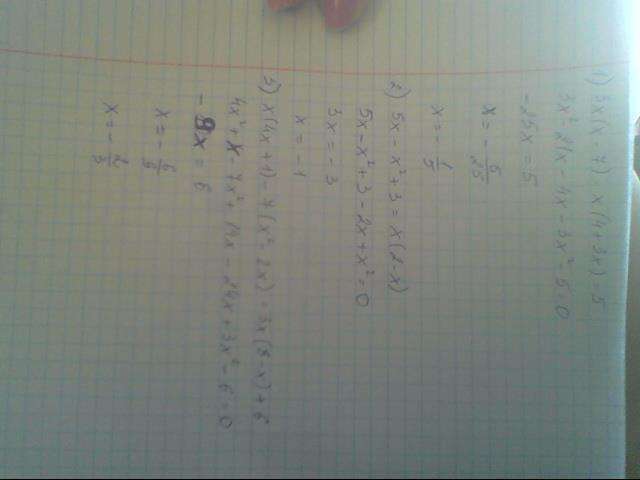 1) 3x(x-7) - x(4+3x) = 5
3x² - 21x - 4x - 3x² - 5 = 0
-25x = 5
x = - 5/25
x = - 1/5
2) 5x - x² + 3 = x(2-x)
5x - x² + 3 - 2x + x² = 0
3x = -3
x = -1
3) x(4x+1) - 7(x² - 2x) = 3x(8-x) + 6
4x² + x - 7x² + 14x - 24x + 3x² - 6 = 0
-9x = 6
x = - 6/9
x = - 2/3